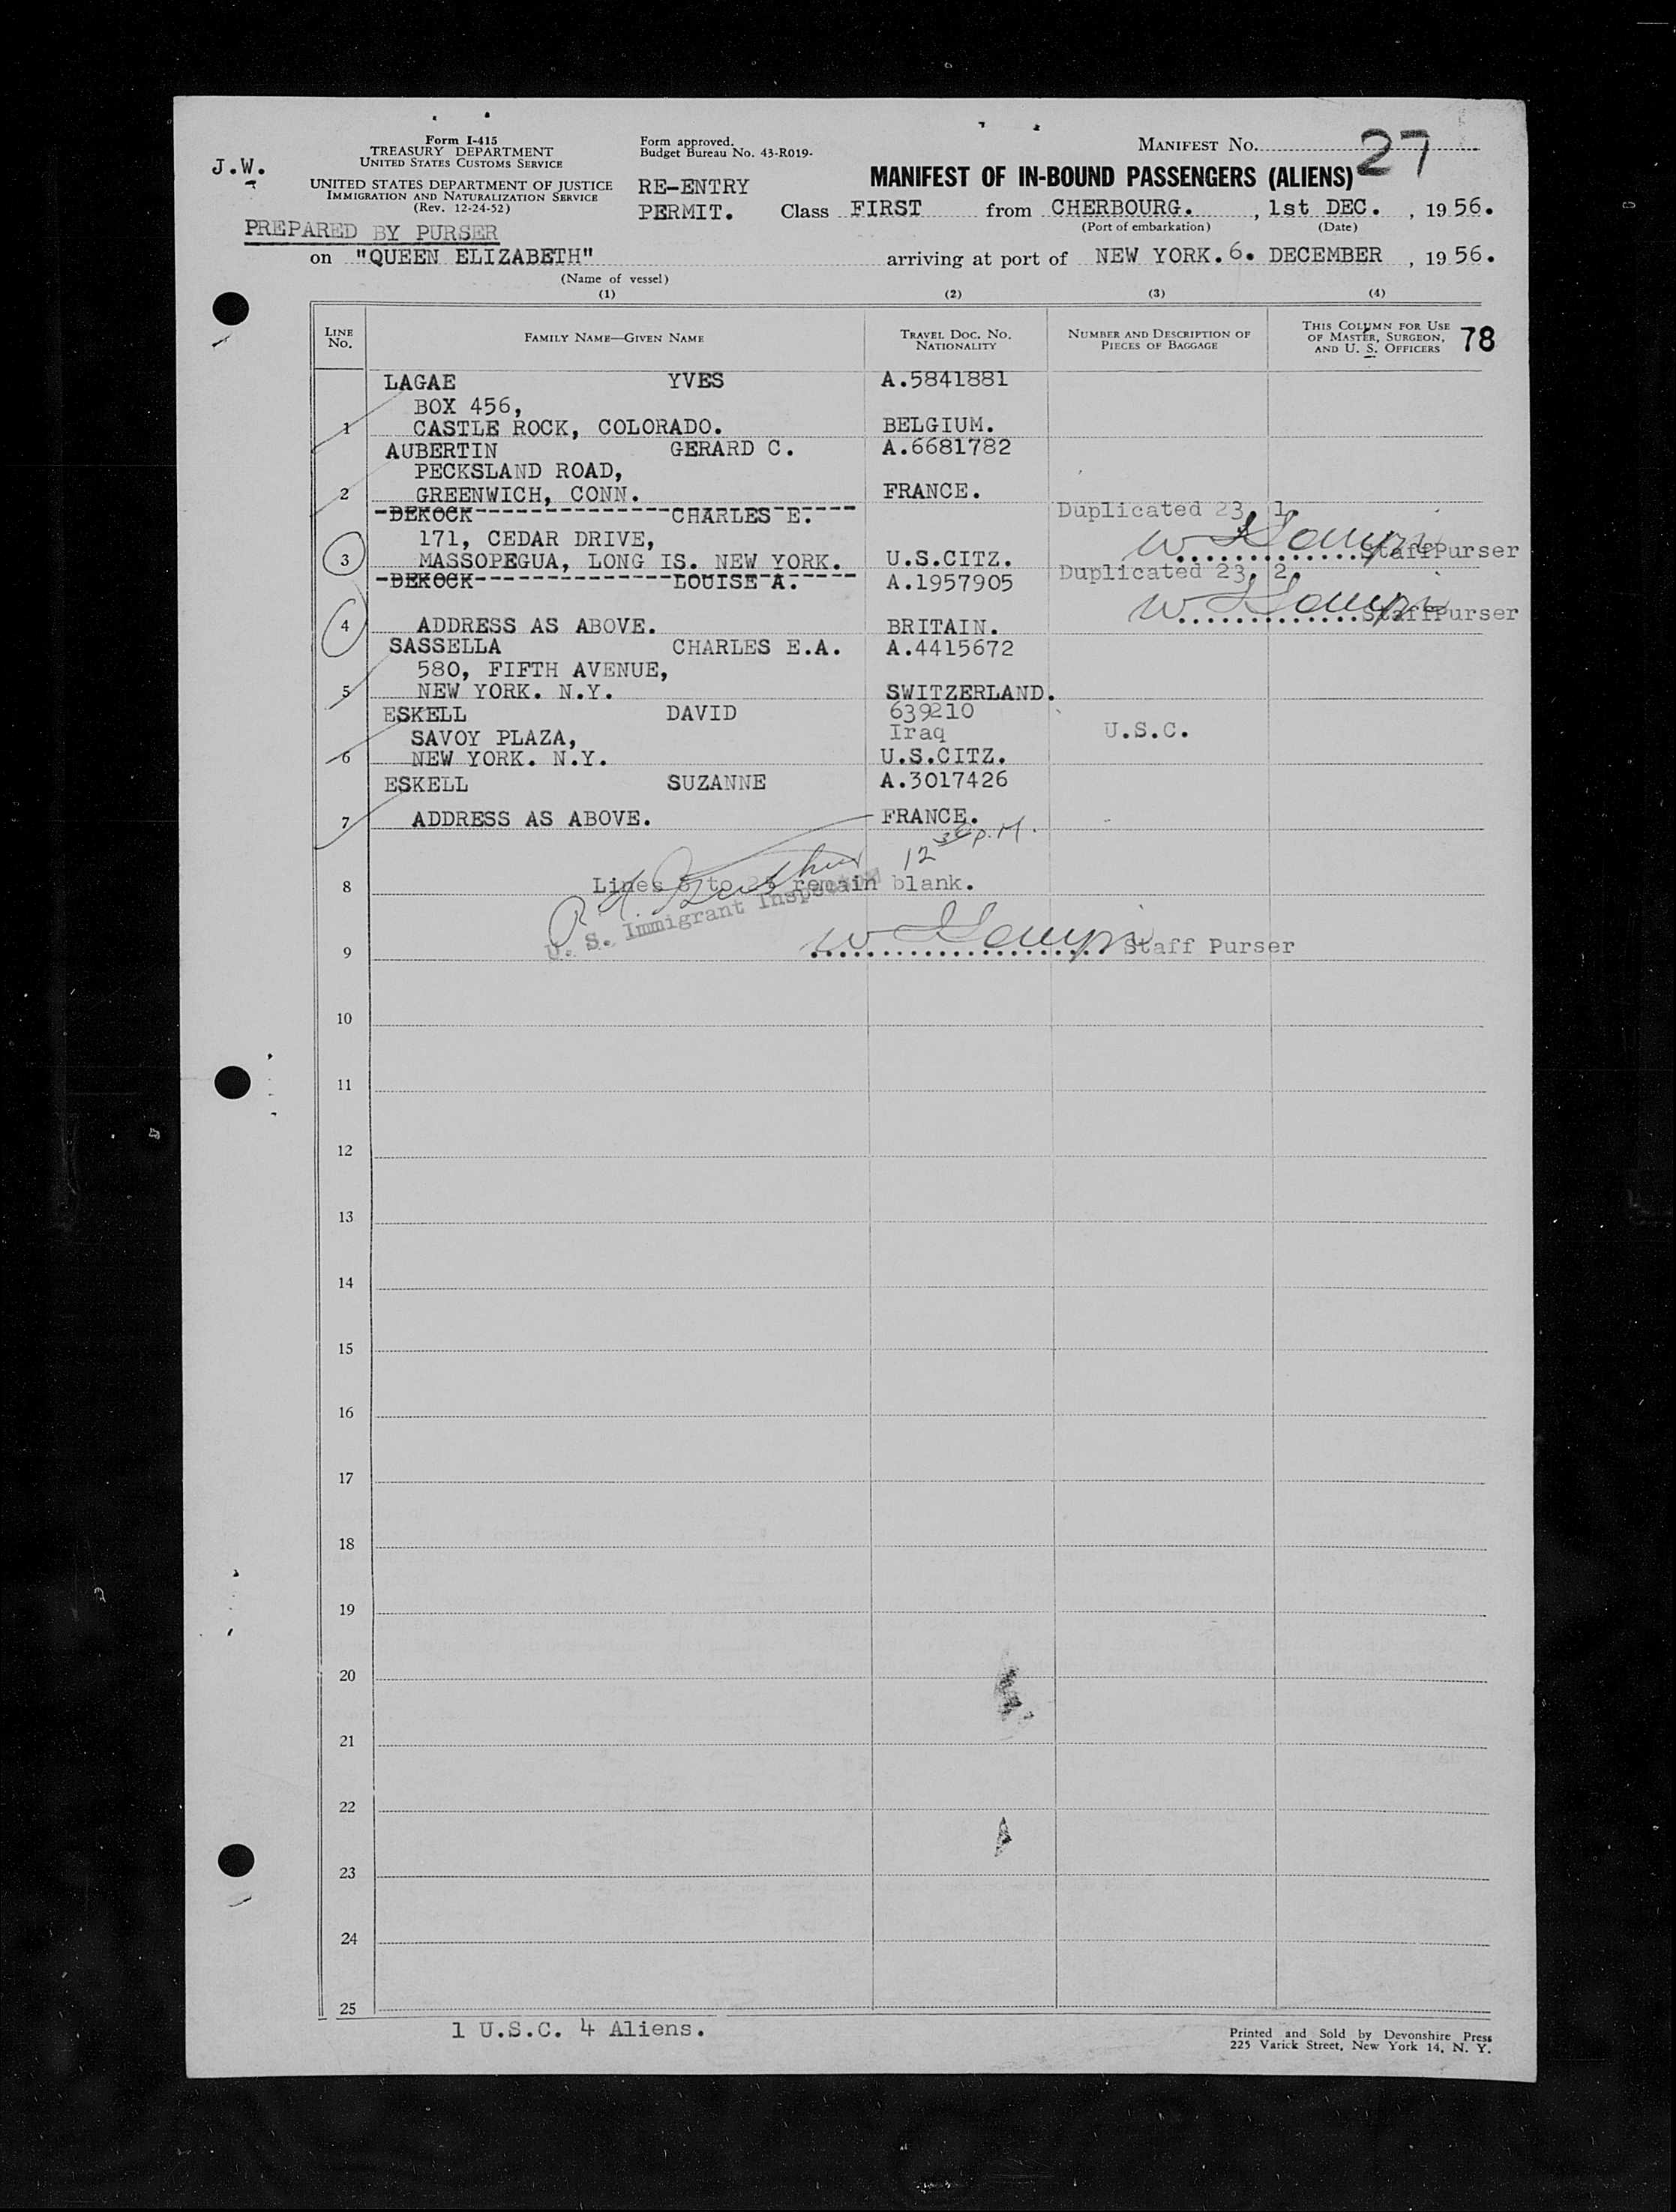 J.W.
Form I-415
TREASURY DEPARTMENT
UNITED STATES CUSTOMS SERVICE
UNITED STATES DEPARTMENT OF JUSTICE
IMMIGRATION AND NATURALIZATION SERVICE
(Rev. 12-24-52)
PREPARED BY PURSER
Form approved.
Budget Bureau No. 43-R019-
RE-ENTRY
PERMIT.
MANIFEST No. 27
MANIFEST OF IN-BOUND PASSENGERS (ALIENS)
Class FIRST from CHERBOURG. , 1st DEC. , 1956.
(Port of embarkation) (Date)
on "QUEEN ELIZABETH" arriving at port of NEW YORK. 6. DECEMBER , 1956.
(Name of vessel)
(1) (2) (3) (4)
LINE No. FAMILY NAME—GIVEN NAME TRAVEL DOC. No. NATIONALITY NUMBER AND DESCRIPTION OF PIECES OF BAGGAGE THIS COLUMN FOR USE OF MASTER, SURGEON, AND U. S. OFFICERS 78
LAGAE YVES A.5841881
BOX 456,
1 CASTLE ROCK, COLORADO. BELGIUM.
AUBERTIN GERARD C. A.6681782
PECKSLAND ROAD,
2 GREENWICH, CONN. FRANCE.
DEKOCK CHARLES E. Duplicated 23, 1.
171, CEDAR DRIVE,
3 MASSOPEGUA, LONG IS. NEW YORK. U.S.CITZ. Staff Purser
DEKOCK LOUISE A. A.1957905 Duplicated 23, 2.
4 ADDRESS AS ABOVE. BRITAIN. Staff Purser
SASSELLA CHARLES E.A. A.4415672
580, FIFTH AVENUE,
5 NEW YORK. N.Y. SWITZERLAND.
ESKELL DAVID 639210
SAVOY PLAZA, Iraq U.S.C.
6 NEW YORK. N.Y. U.S.CITZ.
ESKELL SUZANNE A.3017426
7 ADDRESS AS ABOVE. FRANCE.
12 30 p.M.
8 Lines 8 to 25 remain blank.
U. S. Immigrant Inspector
9 Staff Purser
10
11
12
13
14
15
16
17
18
19
20
21
22
23
24
25
1 U.S.C. 4 Aliens.
Printed and Sold by Devonshire Press
225 Varick Street, New York 14, N. Y.